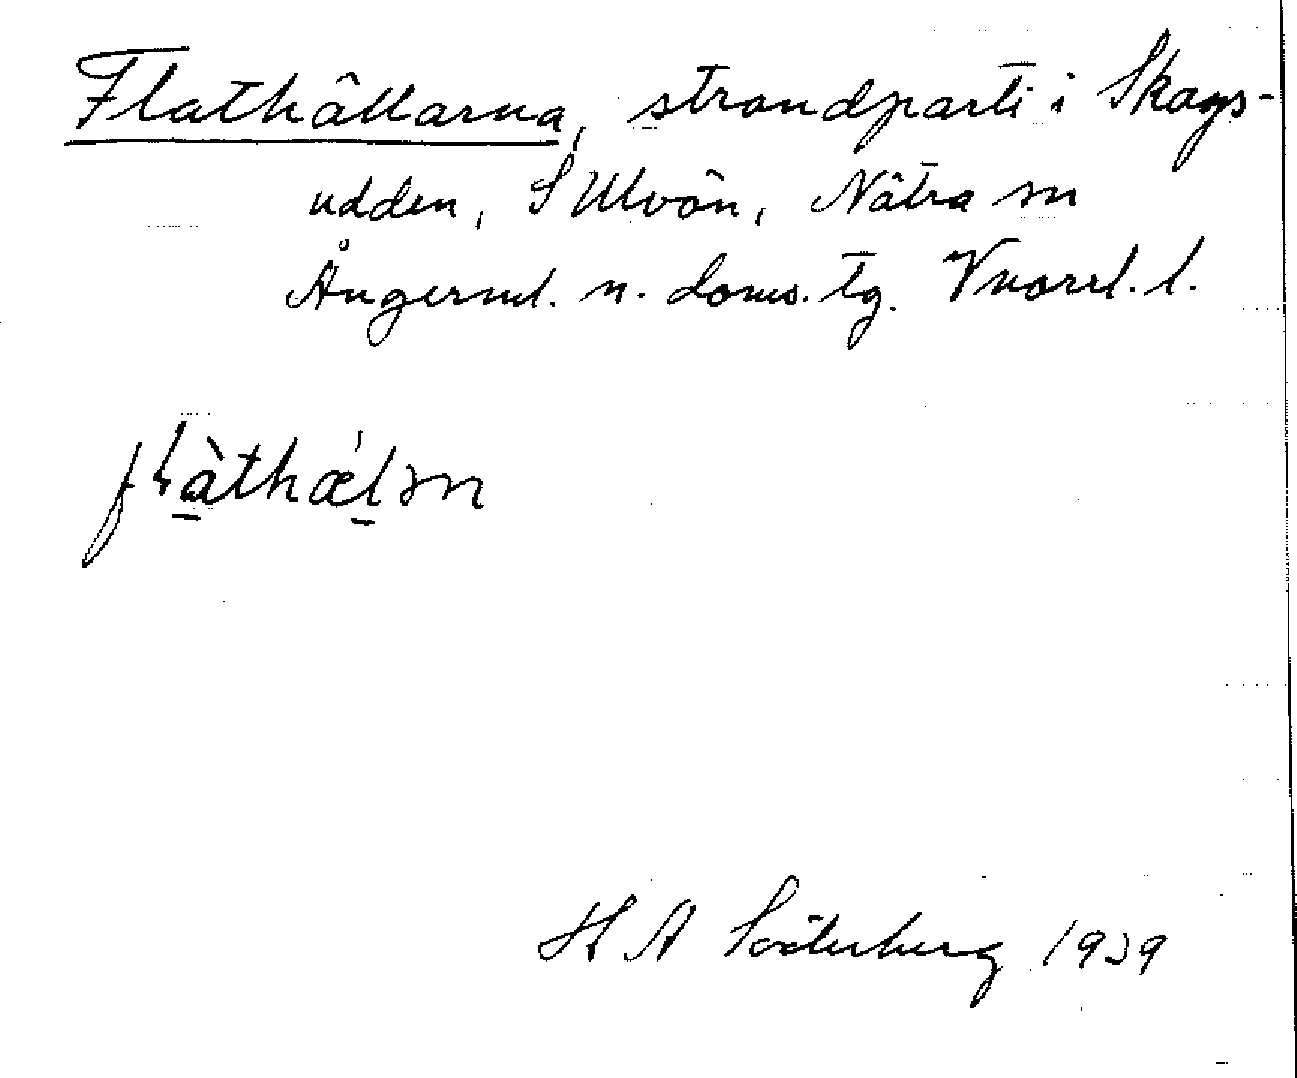 Flathällarna, strandparti i Skags-
udden, S Ulvön, Nätra sn
Ångerml. n. doms. tg. Vnorrl. l.
flàthǽlən
H A Söderberg 1939